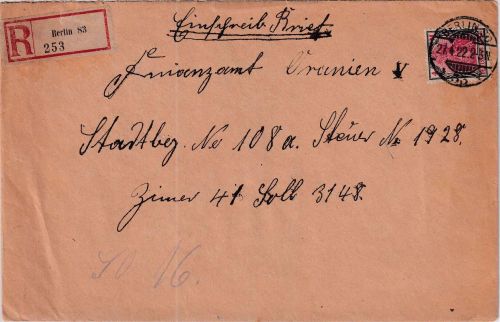 Einschreib Brief
R
Berlin 83
253
BERLIN
27.4.22.2-
Finanzamt Oranien V
Stadtbez. No 108a. Steuer No 1928.
Zimer 41 Soll 3148.
SO 16.